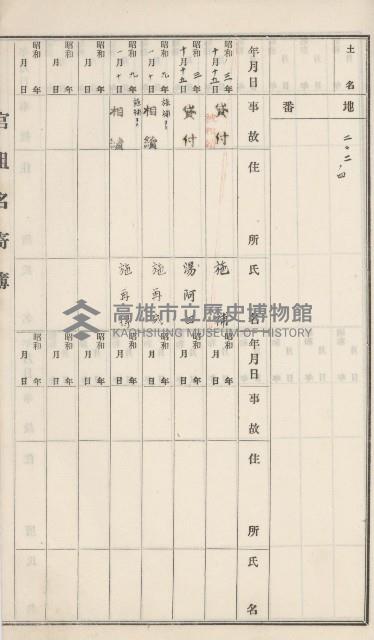 土名
地番
二〇二ノ四
年月日
事故
住所
氏名
年月日
事故
住所
氏名
昭和三年十月十五日
貸付
施
昭和年月日
昭和三年十月十五日
貸付
湯阿
昭和年月日
昭和九年一月十日
相續
施再
昭和年月日
昭和九年一月十日
相續
施再
昭和年月日
昭和年月日
昭和年月日
昭和年月日
昭和年月日
官租名寄簿
高雄市立歷史博物館
KAOHSIUNG MUSEUM OF HISTORY